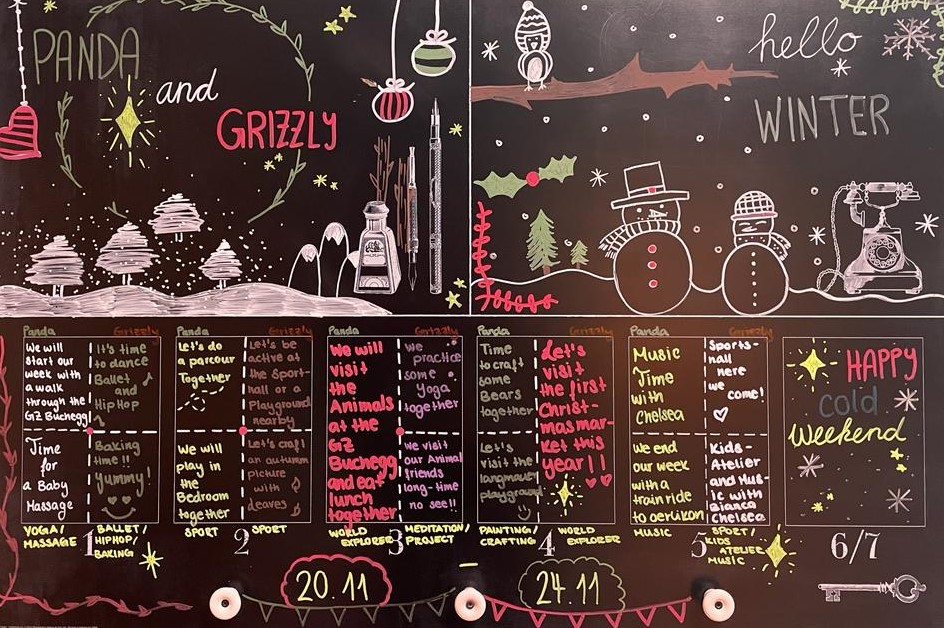 PANDA
and
GRIZZLY
hello
WINTER
Panda
Grizzly
We will
start our
week with
a walk
through the
GZ Buchegg
It's time
to dance
Ballet
and
HipHop
Time
for
a Baby
Massage
Baking
time!!
Yummy!
YOGA/
MASSAGE
1
BALLET/
HIPHOP/
BAKING
Panda
Grizzly
Let's do
a parcour
Together
Let's be
active at
the Sport-
hall or a
Playground
nearby
We will
play in
the
Bedroom
together
Let's craft
an autumn
picture
with
leaves
SPORT
2
SPORT
Panda
Grizzly
We will
visit
the
Animals
at the
GZ
Buchegg
and eat
lunch
together
we
practice
some
yoga
together
we visit
our Animal
friends
long-time
no see!!
WORLD
EXPLORER
3
MEDITATION/
PROJECT
Panda
Grizzly
Time
to craft
some
Bears
together
Let's
visit the
langmauer
playground
Let's
visit
the first
Christ-
masmar-
ket this
year!!
PAINTING/
CRAFTING
4
WORLD
EXPLORER
Panda
Grizzly
Music
Time
with
Chelsea
Sports-
hall
here
we
come!
we end
our week
with a
train ride
to oerlikon
Kids-
Atelier
and Mus-
ic with
Bianca
Chelsea
MUSIC
5
SPORT/
KIDS
ATELIER
MUSIC
HAPPY
cold
Weekend
6/7
20.11
24.11